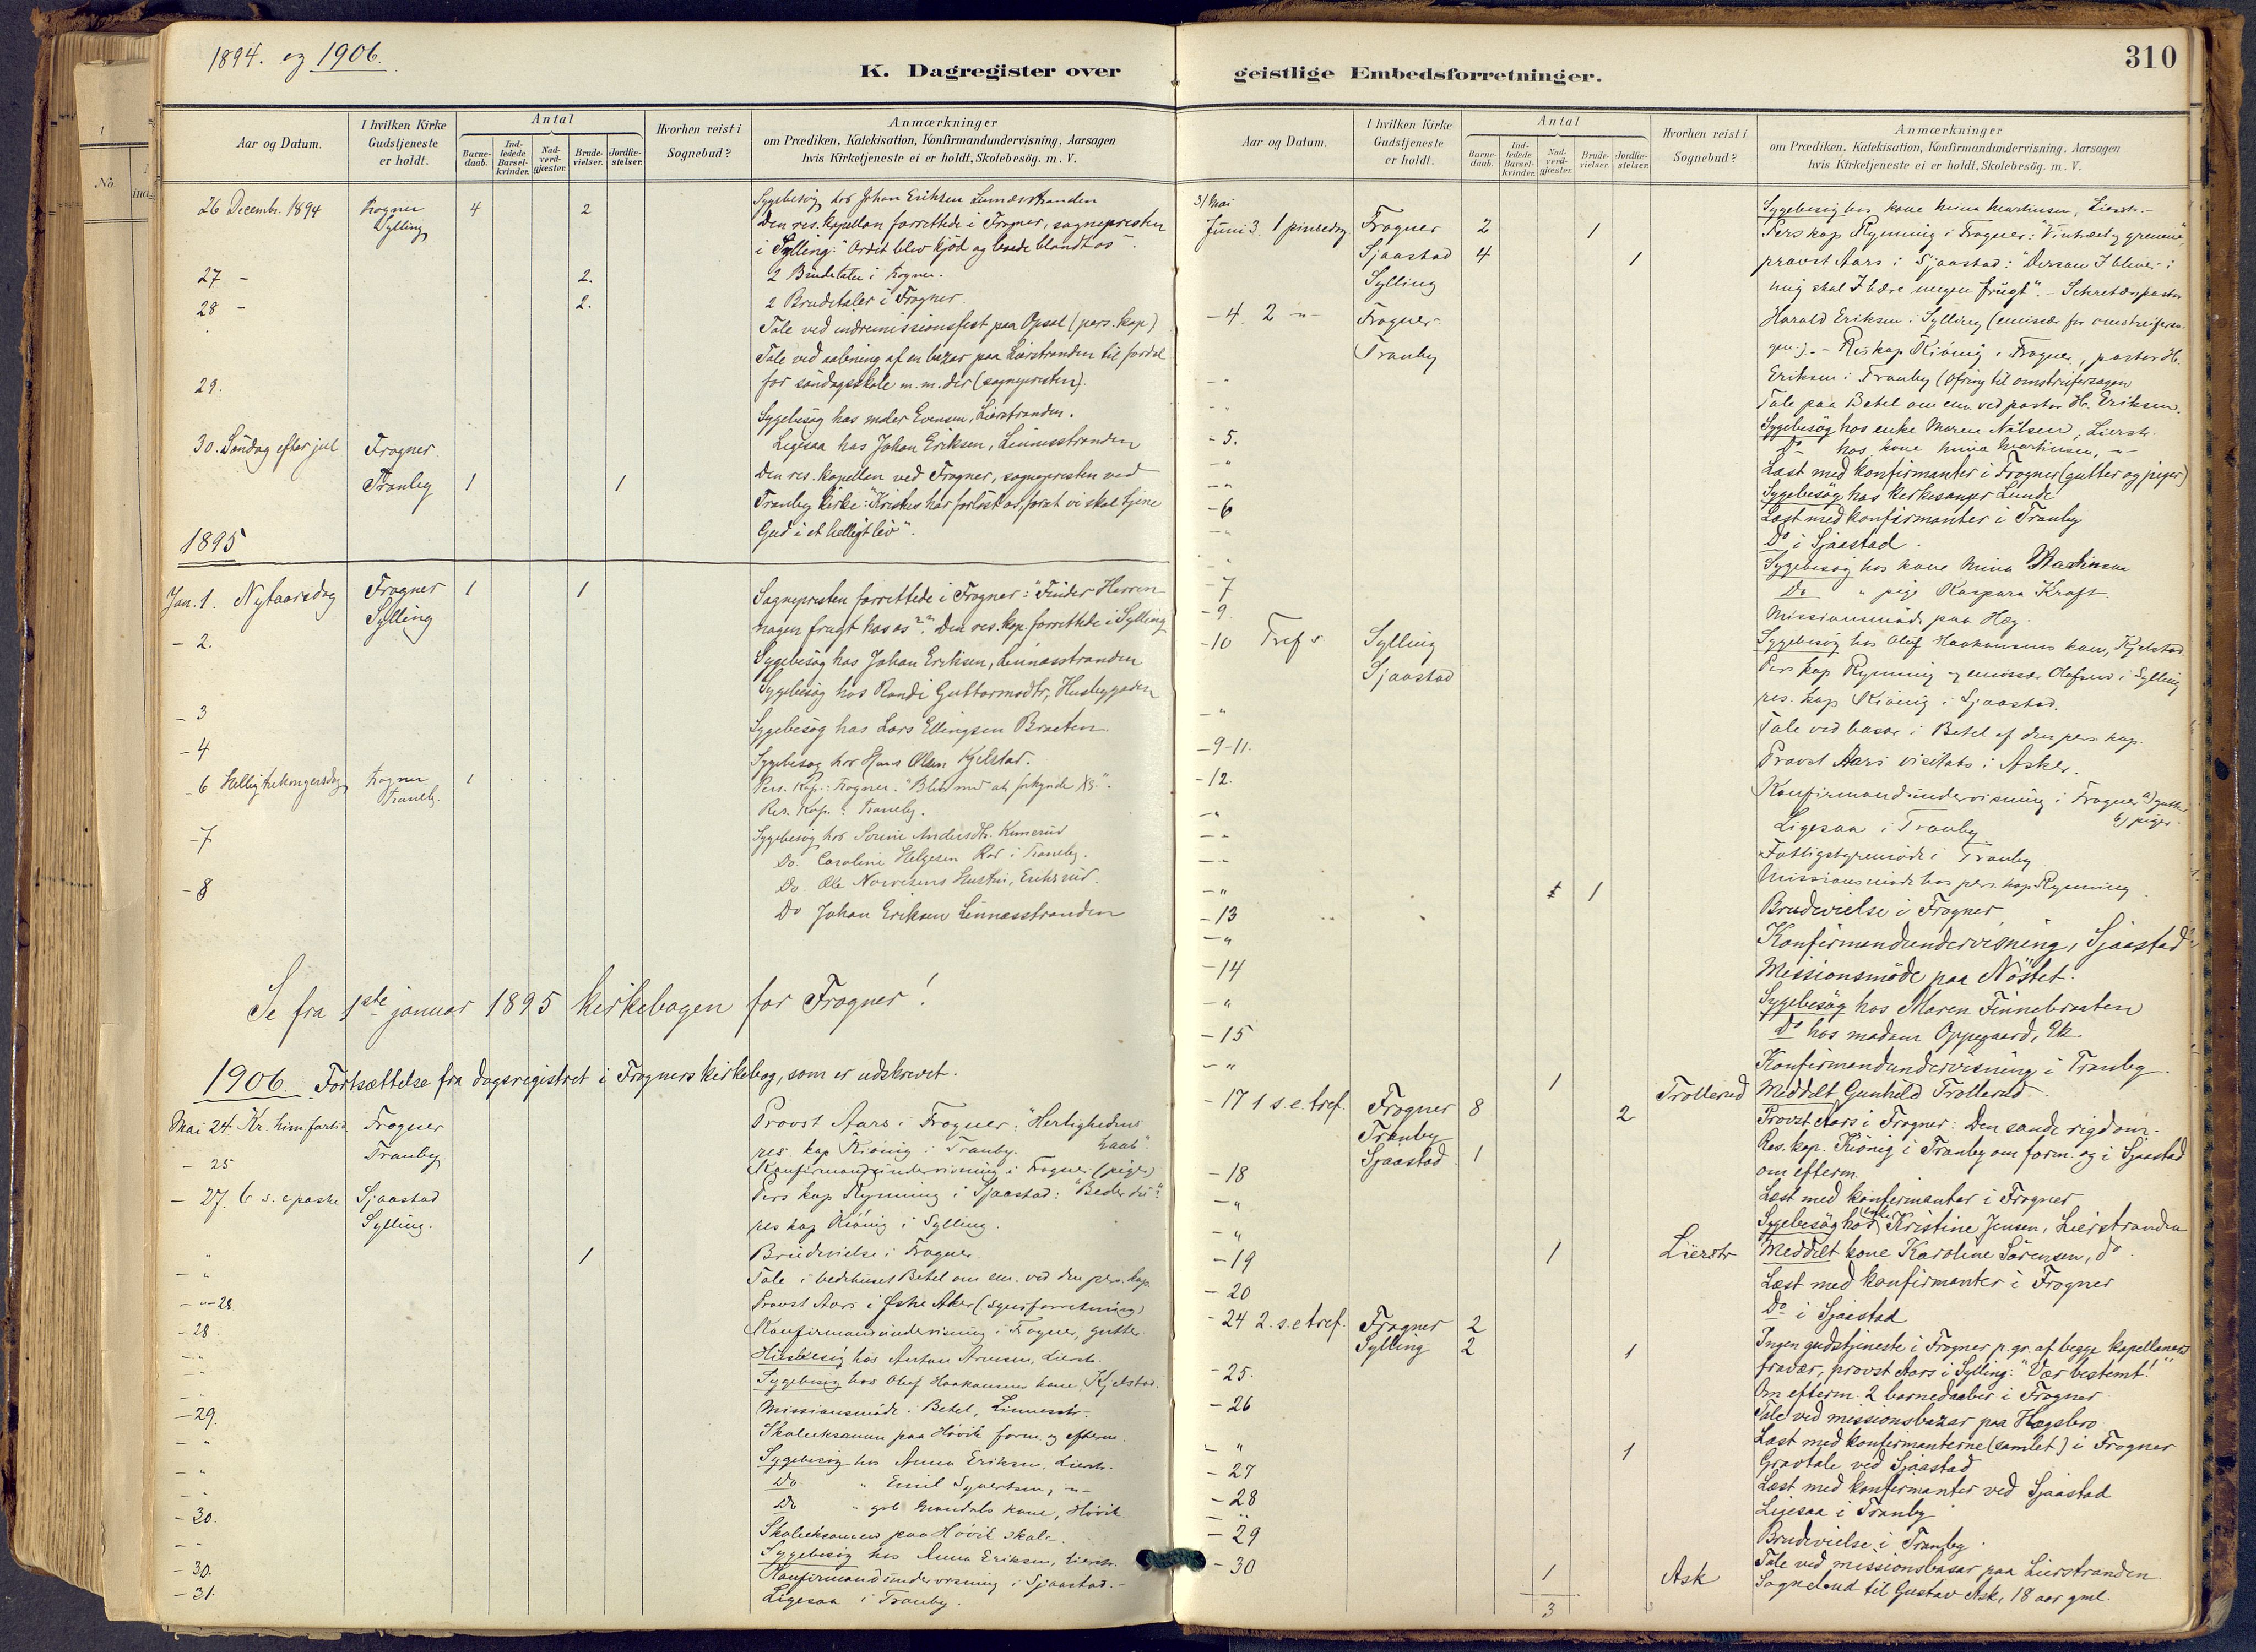 1894. og 1906.
K. Dagregister over
Aar og Datum.
I hvilken Kirke Gudstjeneste er holdt.
Antal
Barnedaab.
Indledede Barselkvinder.
Nadverdgjæster.
Brudevielser.
Jordfæstelser.
Hvorhen reist i Sognebud?
Anmærkninger
om Prædiken, Katekisation, Konfirmandundervisning, Aarsagen
hvis Kirketjeneste ei er holdt, Skolebesög. m. V.
26 Decembr. 1894 Frogner 4 2 Sygebesög hos Johan Eriksen Linnesstranden
Sylling Den res. kapellan forrettede i Frogner, sognepresten
i Sylling: "Ordet blev kjöd og boede blandt os".
27 - 2. 2 Brudetaler i Frogner.
28 - 2. 2 Brudetaler i Frogner.
Tale ved indremissionsfest paa Opsal (pers. kap)
Tale ved aabning af en bazar paa Lierstranden til fordel
29. for söndagsskole m. m. der (sognepresten).
Sygebesög hos maler Evensen, Lierstranden.
30. Söndag efter jul Frogner. Ligesaa hos Johan Eriksen, Linnesstranden
Tranby 1 1 Den res. kapellan ved Frogner, sognepresten ved
Tranby kirke: "Kristus har forlöst os, forat vi skal tjene
Gud i et helligt liv".
1895
Jan. 1. Nytaarsdag Frogner 1 1 Sognepresten forrettede i Frogner: "Finder Herren
Sylling nogen frugt hos os?" Den res. kap. forrettede i Sylling
- 2. Sygebesög hos Johan Eriksen, Linnesstranden
Sygebesög hos Randi Guttormsdtr, Husebygaden
- 3 Sygebesög hos Lars Ellingsen Braaten.
- 4 Sygebesög hos Hans Olsen Kjelstad.
- 6 Hellig trekongersdag Frogner 1 Pers. Kap.: Frogner.
Tranby. Res. Kap.: Tranby.
- 7 Sygebesög hos
Do. Caroline Helgesen Rød i Tranby.
- 8 Do. Ole
Do Johan Eriksen Linnesstranden
Se fra 1ste januar 1895 kirkebogen for Frogner!
1906. Fortsættelse fra dagsregistret i Frogners kirkebog, som er udskrevet.
Mai 24 Kr. himfartsd. Frogner Provst Aars i Frogner: "Herlighedens haab".
Tranby res. kap Kiönig i Tranby.
- 25 Konfirmandundervisning i Frogner (piger)
- 27. 6 s. e paaske Sjaastad Pers kap Rynning i Sjaastad: "Beder du?"
Sylling. res kap Kiönig i Sylling.
- " 1 Brudevielse i Frogner.
- " Tale i bedehuset Betel om em. ved den pers. kap.
- "-28 Provst Aars i Østre Aker (synsforretning)
- 28 Konfirmandundervisning i Frogner, gutter
- " Husbesög hos Anton Arnesen, Lierstr.
- " Sygebesög hos Oluf Haakonsens kone, Kjelstad.
- 29. Missionsmöde i Betel, Linnesstr.
- " Skoleeksamen paa Hövik form. og efterm.
- " Sygebesög hos Anna Eriksen, Lierstr.
- " Do " Emil Syvertsen, -"-
- " Do " kone, Hövik
- 30. Skoleeksamen paa Hövik skole.
- " Sygebesög hos Anna Eriksen, Lierstr.
- 30. Konfirmandundervisning i Sjaastad.-
- 31. Ligesaa i Tranby.
310
geistlige Embedsforretninger.
Aar og Datum.
I hvilken Kirke Gudstjeneste er holdt.
Antal
Barnedaab.
Indledede Barselkvinder.
Nadverdgjæster.
Brudevielser.
Jordfæstelser.
Hvorhen reist i Sognebud?
Anmærkninger
om Prædiken, Katekisation, Konfirmandundervisning, Aarsagen
hvis Kirketjeneste ei er holdt, Skolebesög. m. V.
31 Mai Sygebesög hos kone Mina Martinsen, Lierstr.-
Juni 3. 1 pinsedag Frogner 2 1 Pers kap Rynning i Frogner: "Vintræet og grenene",
Sjaastad 4 1 provst Aars i Sjaastad: "Dersom I bliver i
Sylling mig skal I bære megen frugt". - Sekretær pastor
- 4. 2 -"- Frogner Harald Eriksen i Sylling (emissær for omstreifersa-
Tranby gen.). - Res kap Kiönig i Frogner, pastor H.
Eriksen i Tranby (ofring til omstreifersagen
- " Tale paa Betel om em. ved pastor H. Eriksen.
- 5. Sygebesög hos enke Maren Nilsen, Lierstr.
Do hos kone Mina Martinsen, -"-
- " Læst med konfirmanter i Frogner (gutter og piger)
- " Sygebesög hos kirkesanger Lunde
- 6 Læst med konfirmanter i Tranby
- " Do i Sjaastad.
- " Sygebesög hos kone Mina Martinsen
- 7 Do " pige Kaspara Kraft.
- 9. Missionsmöde paa Hæg.
- 10 Tref s. Sylling Sygebesög hos Oluf Haakonsens kone, Kjelstad.
Sjaastad Pers kap Rynning og emissær Olafsen i Sylling
res. kap Kiönig i Sjaastad.
- " Tale ved basar i Betel af den pers. kap.
- 9-11. Provst Aars visitats i Asker.
- 12. Konfirmandundervisning i Frogner a) gutter
b) piger.
- " Ligesaa i Tranby
- " Fattigstyremöde i Tranby
- " Missionsmöde hos pers. kap. Rynning.
- " 1 Brudevielse i Frogner
- 13 Konfirmandundervisning, Sjaastad
- " Missionsmöde paa Nöstet.
- 14 Sygebesög hos Maren Finnebraaten
- " Do hos madam Oppegaard, Ek
- 15 Konfirmandundervisning i Tranby.
- " 1 Trollerud Meddelt Gunhild Trollerud.
- 17 1 s. e. tref. Frogner 8 2 Provst Aars i Frogner: Den sande rigdom.
Tranby Res. kap. Kiönig i Tranby om form. og i Sjaastad
Sjaastad 1 om efterm.
- 18 Læst med konfirmanter i Frogner
- " Sygebesög hos (enke) Kristine Jensen, Lierstranden
- " 1 Lierstr Meddelt kone Karoline Sörensen, do.
- 19 Læst med konfirmanter i Frogner
- 20 Do i Sjaastad
- 24 2. s. e tref. Frogner 2 Ingen gudstjeneste i Frogner p. gr. af begge kapellaners
Sylling 2 1 fravær, provst Aars i Sylling: "Vær bestemt!"
Om efterm. 2 barnedaaber i Frogner.
- 25. Tale ved missionsbazar paa Hægsbro
- 26 Læst med konfirmanterne (samlet) i Frogner
- " 1 Gravtale ved Sjaastad
- 27 Læst med konfirmanter ved Sjaastad
- 28 Ligesaa i Tranby
- " Brudevielse i Tranby.
- 29 Tale ved missionsbasar paa Lierstranden
- 30 1 Ask Sognebud til Gustav Ask, 18 aar gml.
3